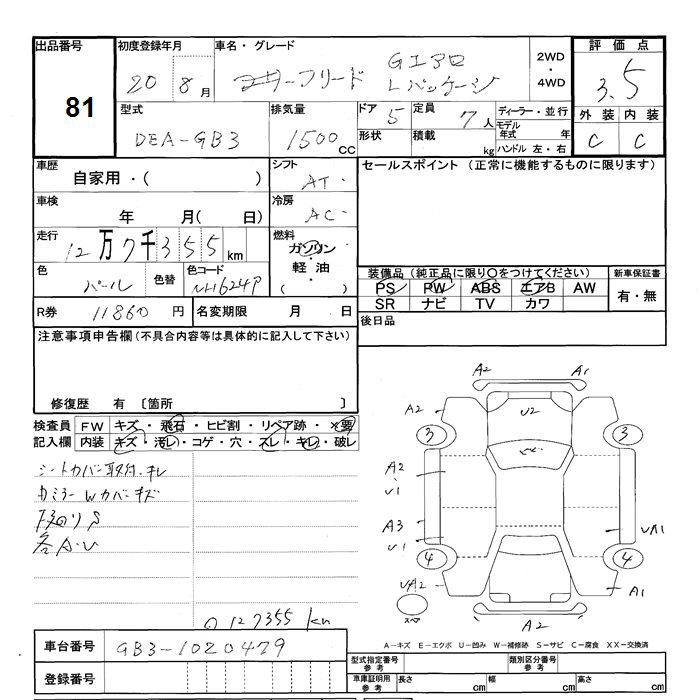 出品番号 初度登録年月 車名・グレード 評価点
81 20 8月 フリード Gエアロ Lパッケージ 2WD・4WD 3.5
型式 排気量 ドア 5 定員 7人 ディーラー・並行 外装 内装
DBA-GB3 1500cc 形状 積載 kg モデル年式 年 C C
ハンドル 左・右
車歴 自家用・( ) シフト AT セールスポイント (正常に機能するものに限ります)
車検 年 月( 日) 冷房 AC
走行 12万7千355km 燃料 ガソリン・軽油・( )
色 パール 色替 色コード NH624P
装備品 (純正品に限り○をつけてください) 新車保証書
PS PW ABS エアB AW 有・無
SR ナビ TV カワ
R券 11860円 名変期限 月 日 後日品
注意事項申告欄 (不具合内容等は具体的に記入して下さい)
修復歴 有 〔箇所 〕
検査員 FW キズ・飛石・ヒビ割・リペア跡・×要
記入欄 内装 キズ・汚レ・コゲ・穴・スレ・キレ・破レ
シートカバー取付、キレ
カミラーWカバーキズ
下回りS
各A・U
A2 A1
A2 U2
3 3
A2
U1
A3
U1 UA1
4 4
UA2 A1
スペア A2
◎127355km
車台番号 GB3-1020479
A-キズ E-エクボ U-凹み W-補修跡 S-サビ C-腐食 XX-交換済
型式指定番号 参考 類別区分番号 参考
登録番号 車庫証明用 参考 長さ cm 幅 cm 高さ cm